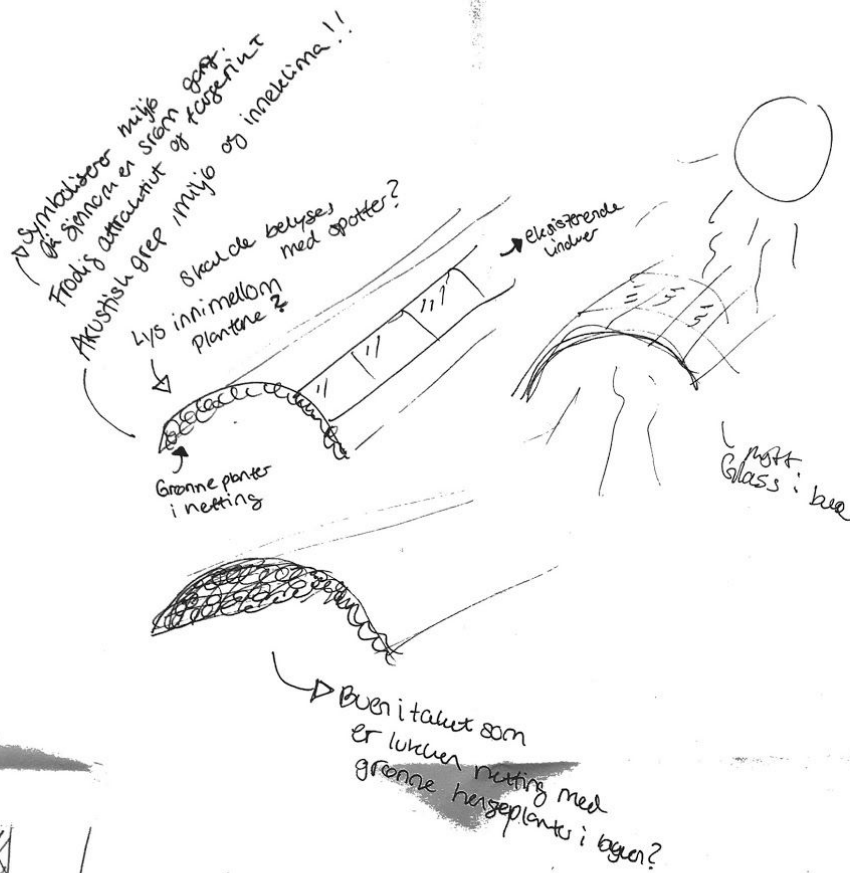 Symboliserer miljø
på sinnam er strøm garg.
Frodig attraktivt og fargerint
Akustisk grep, miljø og inneklima!!
skal de belyses
med spotter?
Lys innimellom
Plantene?
eksisterende
vinduer
Grønne planter
i netting
nytt
Glass i bua
Buen i taket som
er lukken netting med
grønne hengeplanter i buen?